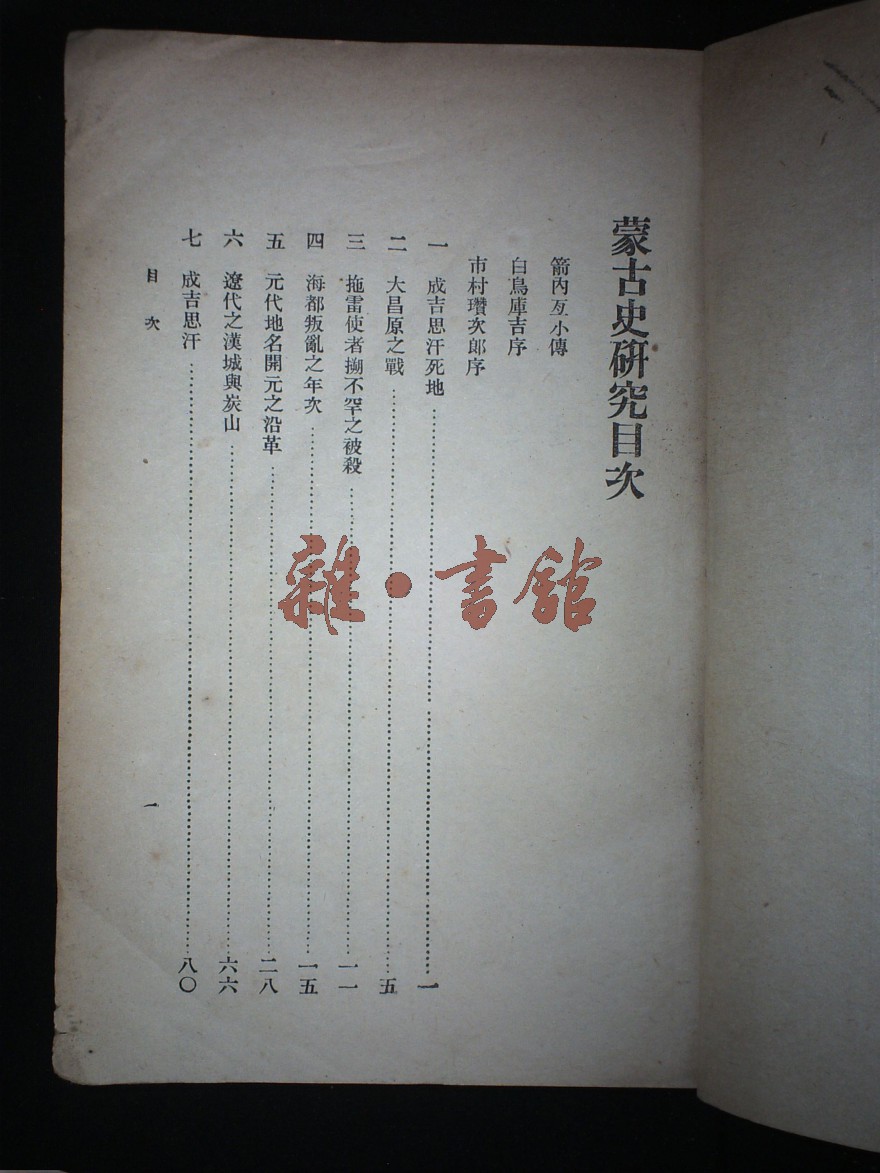 蒙古史研究目次
箭內亙小傳
白鳥庫吉序
市村瓚次郎序
一 成吉思汗死地……一
二 大昌原之戰……五
三 拖雷使者搠不罕之被殺……一一
四 海都叛亂之年次……一五
五 元代地名開元之沿革……二八
六 遼代之漢城與炭山……六六
七 成吉思汗……八〇
目次 一
雜·書館